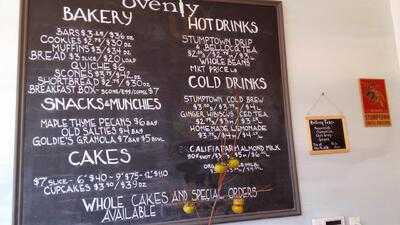 ovenly
BAKERY
BARS $3 EA/$36 DZ
COOKIES $2.75/$30 DZ
MUFFINS $3/$34 DZ
BREAD $3 SLICE/$20 LOAF
QUICHE $6
SCONES
SHORTBREAD $2.75/$30 DZ
BREAKFAST BOX - SCONE/EGG/COFFEE $7
SNACKS & MUNCHIES
MAPLE THYME PECANS $6 BAG
OLD SALTIES $4 BAG
GOLDIE'S GRANOLA $7 BAG $5 BOWL
CAKES
$7 SLICE - 6" $40 - 9" $75 - 12" $110
CUPCAKES $3.50/$39 DZ
HOT DRINKS
STUMPTOWN DRIP
& BELLOCQ TEA
WHOLE BEANS
MKT PRICE LB
COLD DRINKS
STUMPTOWN COLD BREW
GINGER HIBISCUS ICED TEA
HOMEMADE LEMONADE
CALIFIA FARM ALMOND MILK
WHOLE CAKES AND SPECIAL ORDERS
AVAILABLE
STUMPTOWN